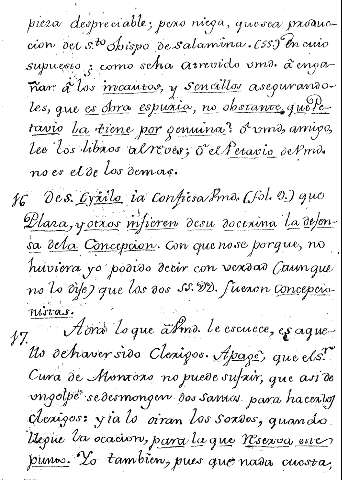 pieza despreciable; pero niega, que sea produc-
cion del s.to obispo de Salamina. (55.) En cuio
supuesto; como se ha atrevido vmd. â enga-
ñar â los incautos, y sencillos asegurando-
les, que es obra espuria, no obstante, que Pe-
tavio la tiene por genuina? ô vmd. amigo,
lee los libros al revès; ô el Petavio de Vmd.
no es el de los demas.
16 De S. Cyrilo ia confiesa Vmd. (fol. 8.) que
Plaza, y otros infieren de su doctrina la defen-
sa de la Concepcion. Con que no se porque, no
huviera yo podido decir con verdad (aunque
no lo dije) que los dos SS. PP. fueron Concepcio-
nistas.
17. Aora lo que â Vmd. le escuece, es aque-
llo de haver sido Clerigos. Apage, que el s.r
Cura de Montoro no puede sufrir, que asi de
un golpe se desmongen dos Santos para hacerlos
Clerigos: y ia lo oiran los Sordos, quando
llegue la ocacion, para la que reserva este
punto. Yo tambien, pues que nada cuesta,